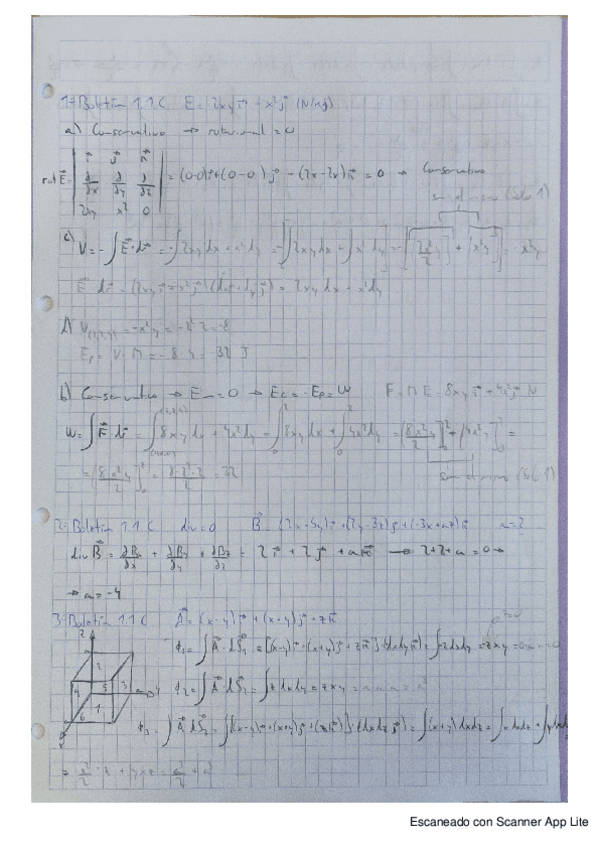 1-Boletín 1.1 C E = 2xy i + x² j (N/kg)
a) Conservativo → rotacional = 0
rot E = | i j k | ∂/∂x ∂/∂y ∂/∂z | 2xy x² 0 | = (0-0) i + (0-0) j - (2x-2x) k = 0 → Conservativo
c) V = -∫ E · dr = -∫ 2xy dx + x² dy = -∫ 2xy dx + ∫ x² dy = -[2x²/2 y] + [x² y] = -x²y
E dr = (2xy i + x² j)(dx i + dy j) = 2xy dx + x² dy
V(2,2,4) = -x²y = -2² 2 = -8
Ep = V · M = -8 · 4 = -32 J
b) Conservativo → Em = 0 → Ec = -Ep = W F = M E = 8xy i + 4x² j N
W = ∫ F · dr = ∫ 8xy dx + 4x² dy = ∫ 8xy dx + ∫ 4x² dy = [8x²y/2] + [4x² y] =
= [8x²y/2] = 8·2²·2/2 = 32
2-Boletín 1.1 C div = 0 B = (2x-5y) i + (2y-3z) j + (-3x+az) k a = ?
div B = ∂Bx/∂x + ∂By/∂y + ∂Bz/∂z = 2 i + 2 j + a k → 2+2+a = 0 →
→ a = -4
3-Boletín 1.1 C A = (x-y) i + (x+y) j + z k
ϕ1 = ∫ A · dS1 = ∫[(x-y) i + (x+y) j + z k] · dxdy k = ∫ z dxdy = zxy
ϕ2 = ∫ A · dS2 = ∫ z dxdy = zxy
ϕ3 = ∫ A dS3 = ∫[(x-y) i + (x+y) j + (z k)] · dxdz j = ∫ (x+y) dxdz = ∫ x dxdz + ∫ y dxdz
= x²/2 · z + yxz
Escaneado con Scanner App Lite